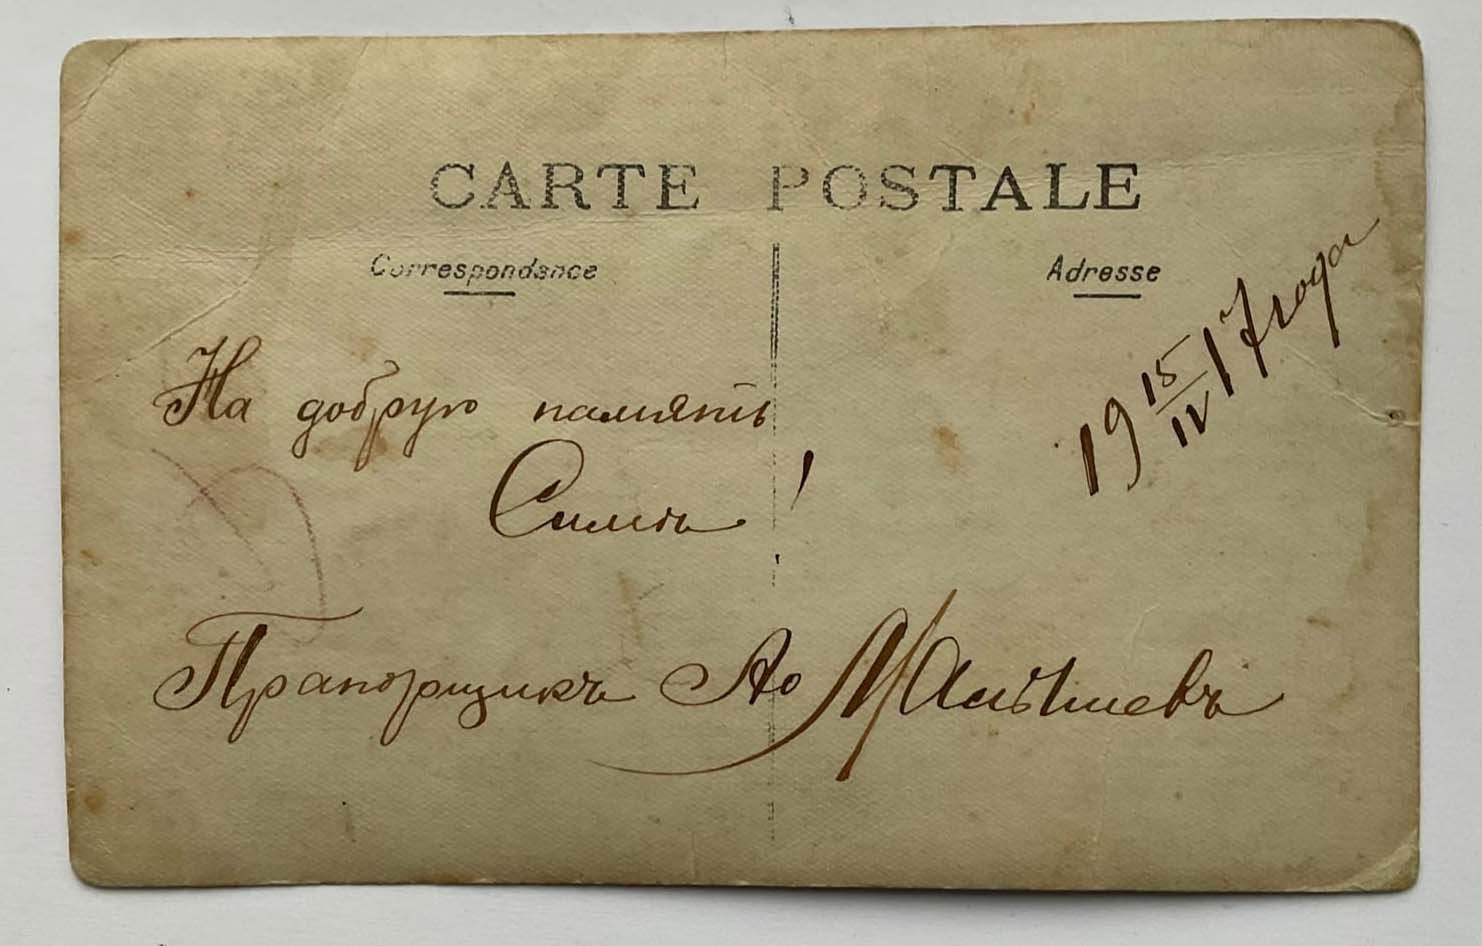 CARTE POSTALE
Correspondance
Adresse
19 15/IV 17 года
На добрую память
Симѣ!
Прапорщикъ Малышевъ